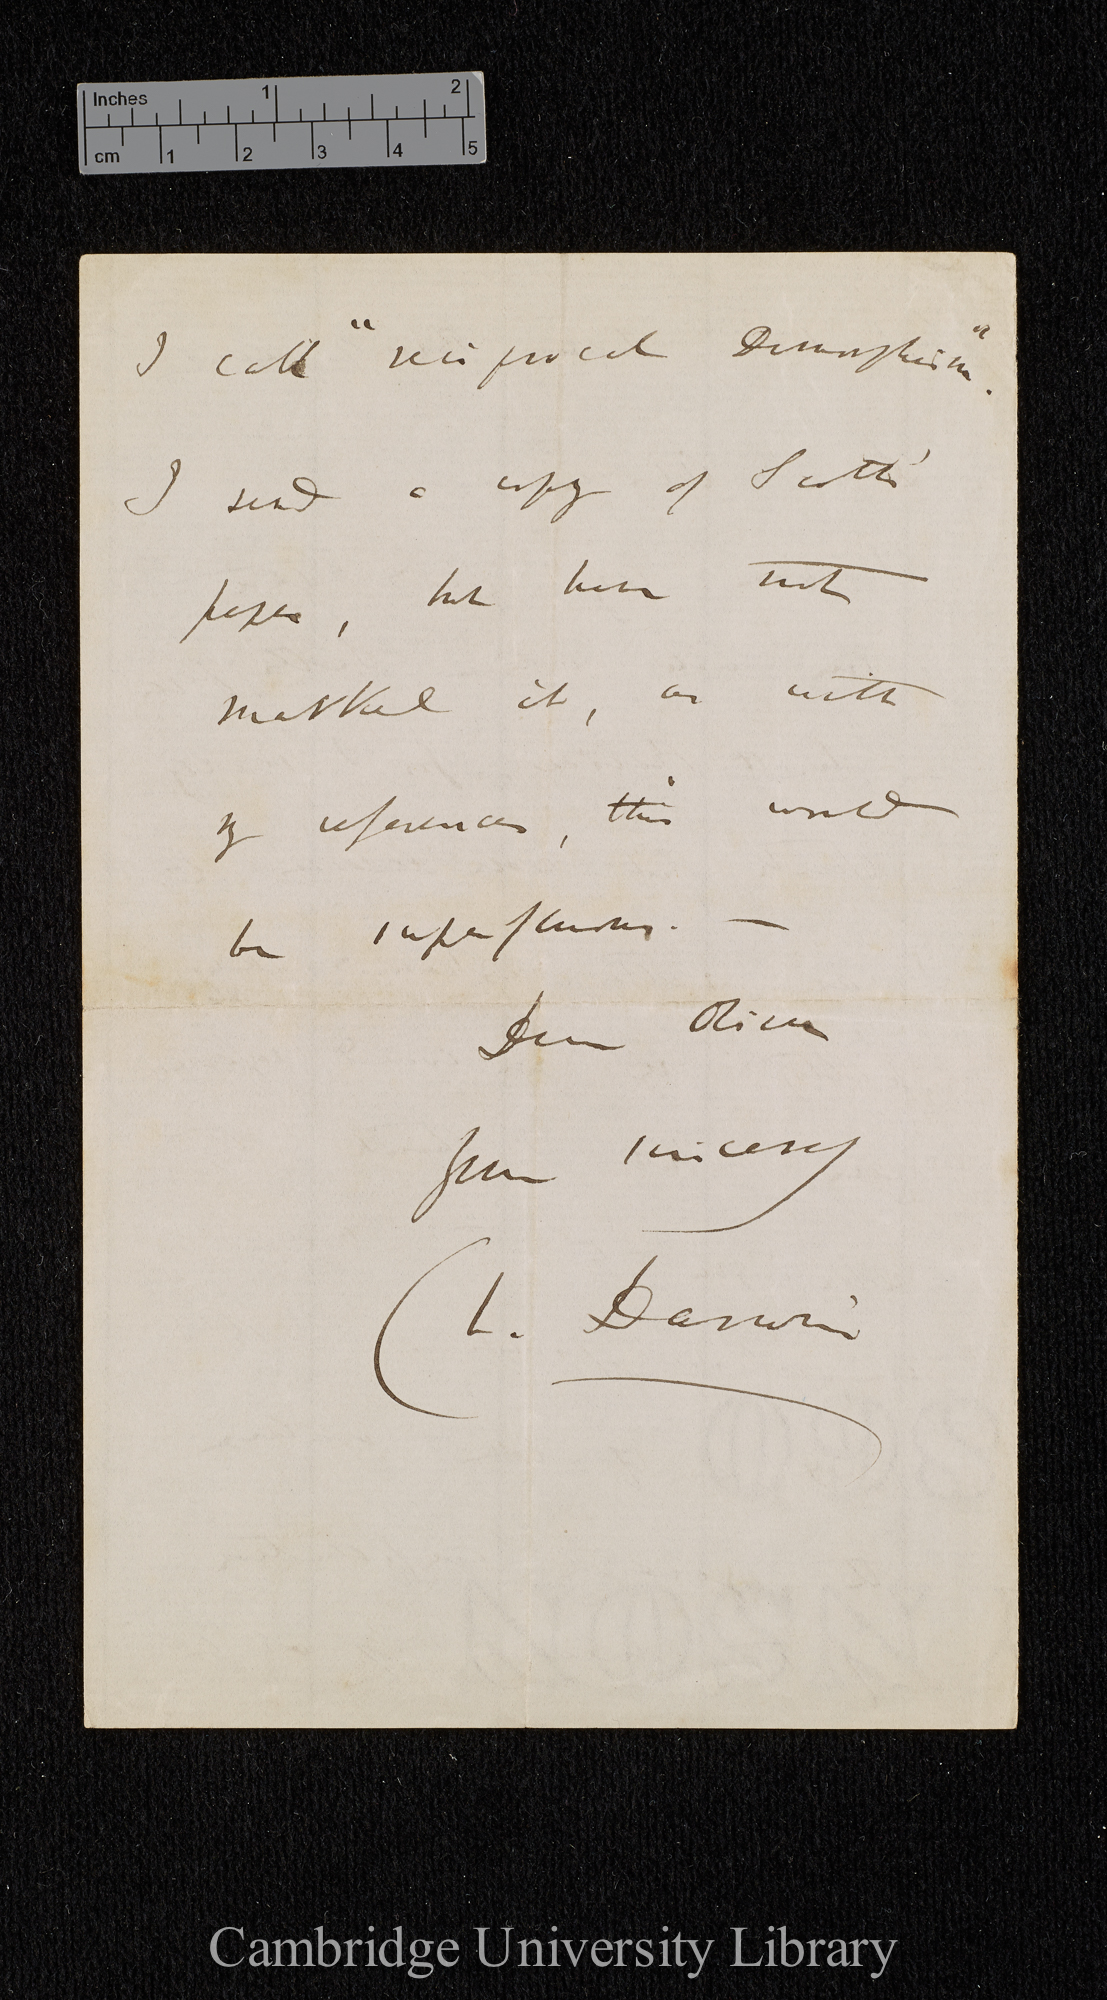 Inches 1 2
cm 1 2 3 4 5
I call "reciprocal Dimorphism".
I send a copy of Scott's
paper, but have not
marked it, as with
my references, this would
be superfluous. —
Dear Oliver
Yours sincerely
Ch. Darwin
Cambridge University Library